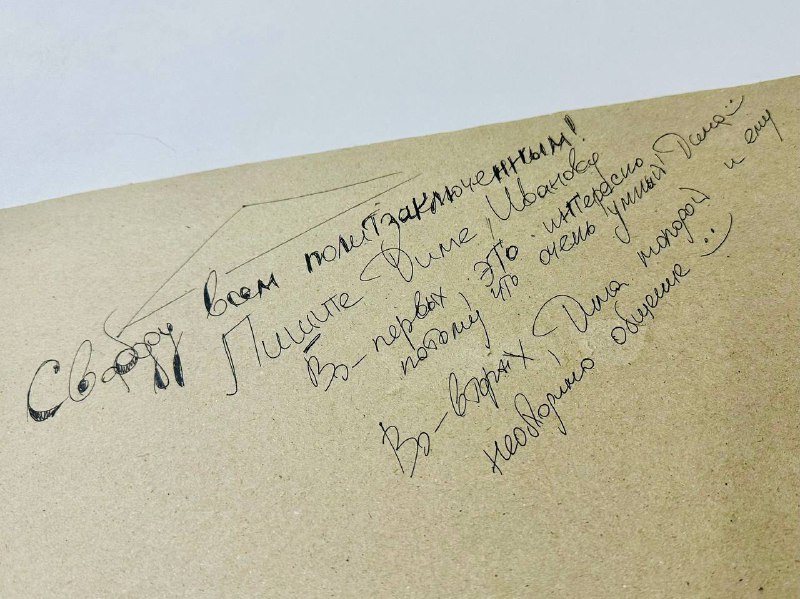 Свободу всем политзаключенным!
Пишите Диме Иванову
Во-первых, это интересно
потому что очень умный Дима
Во-вторых, Дима молодой и ему
необходимо общение